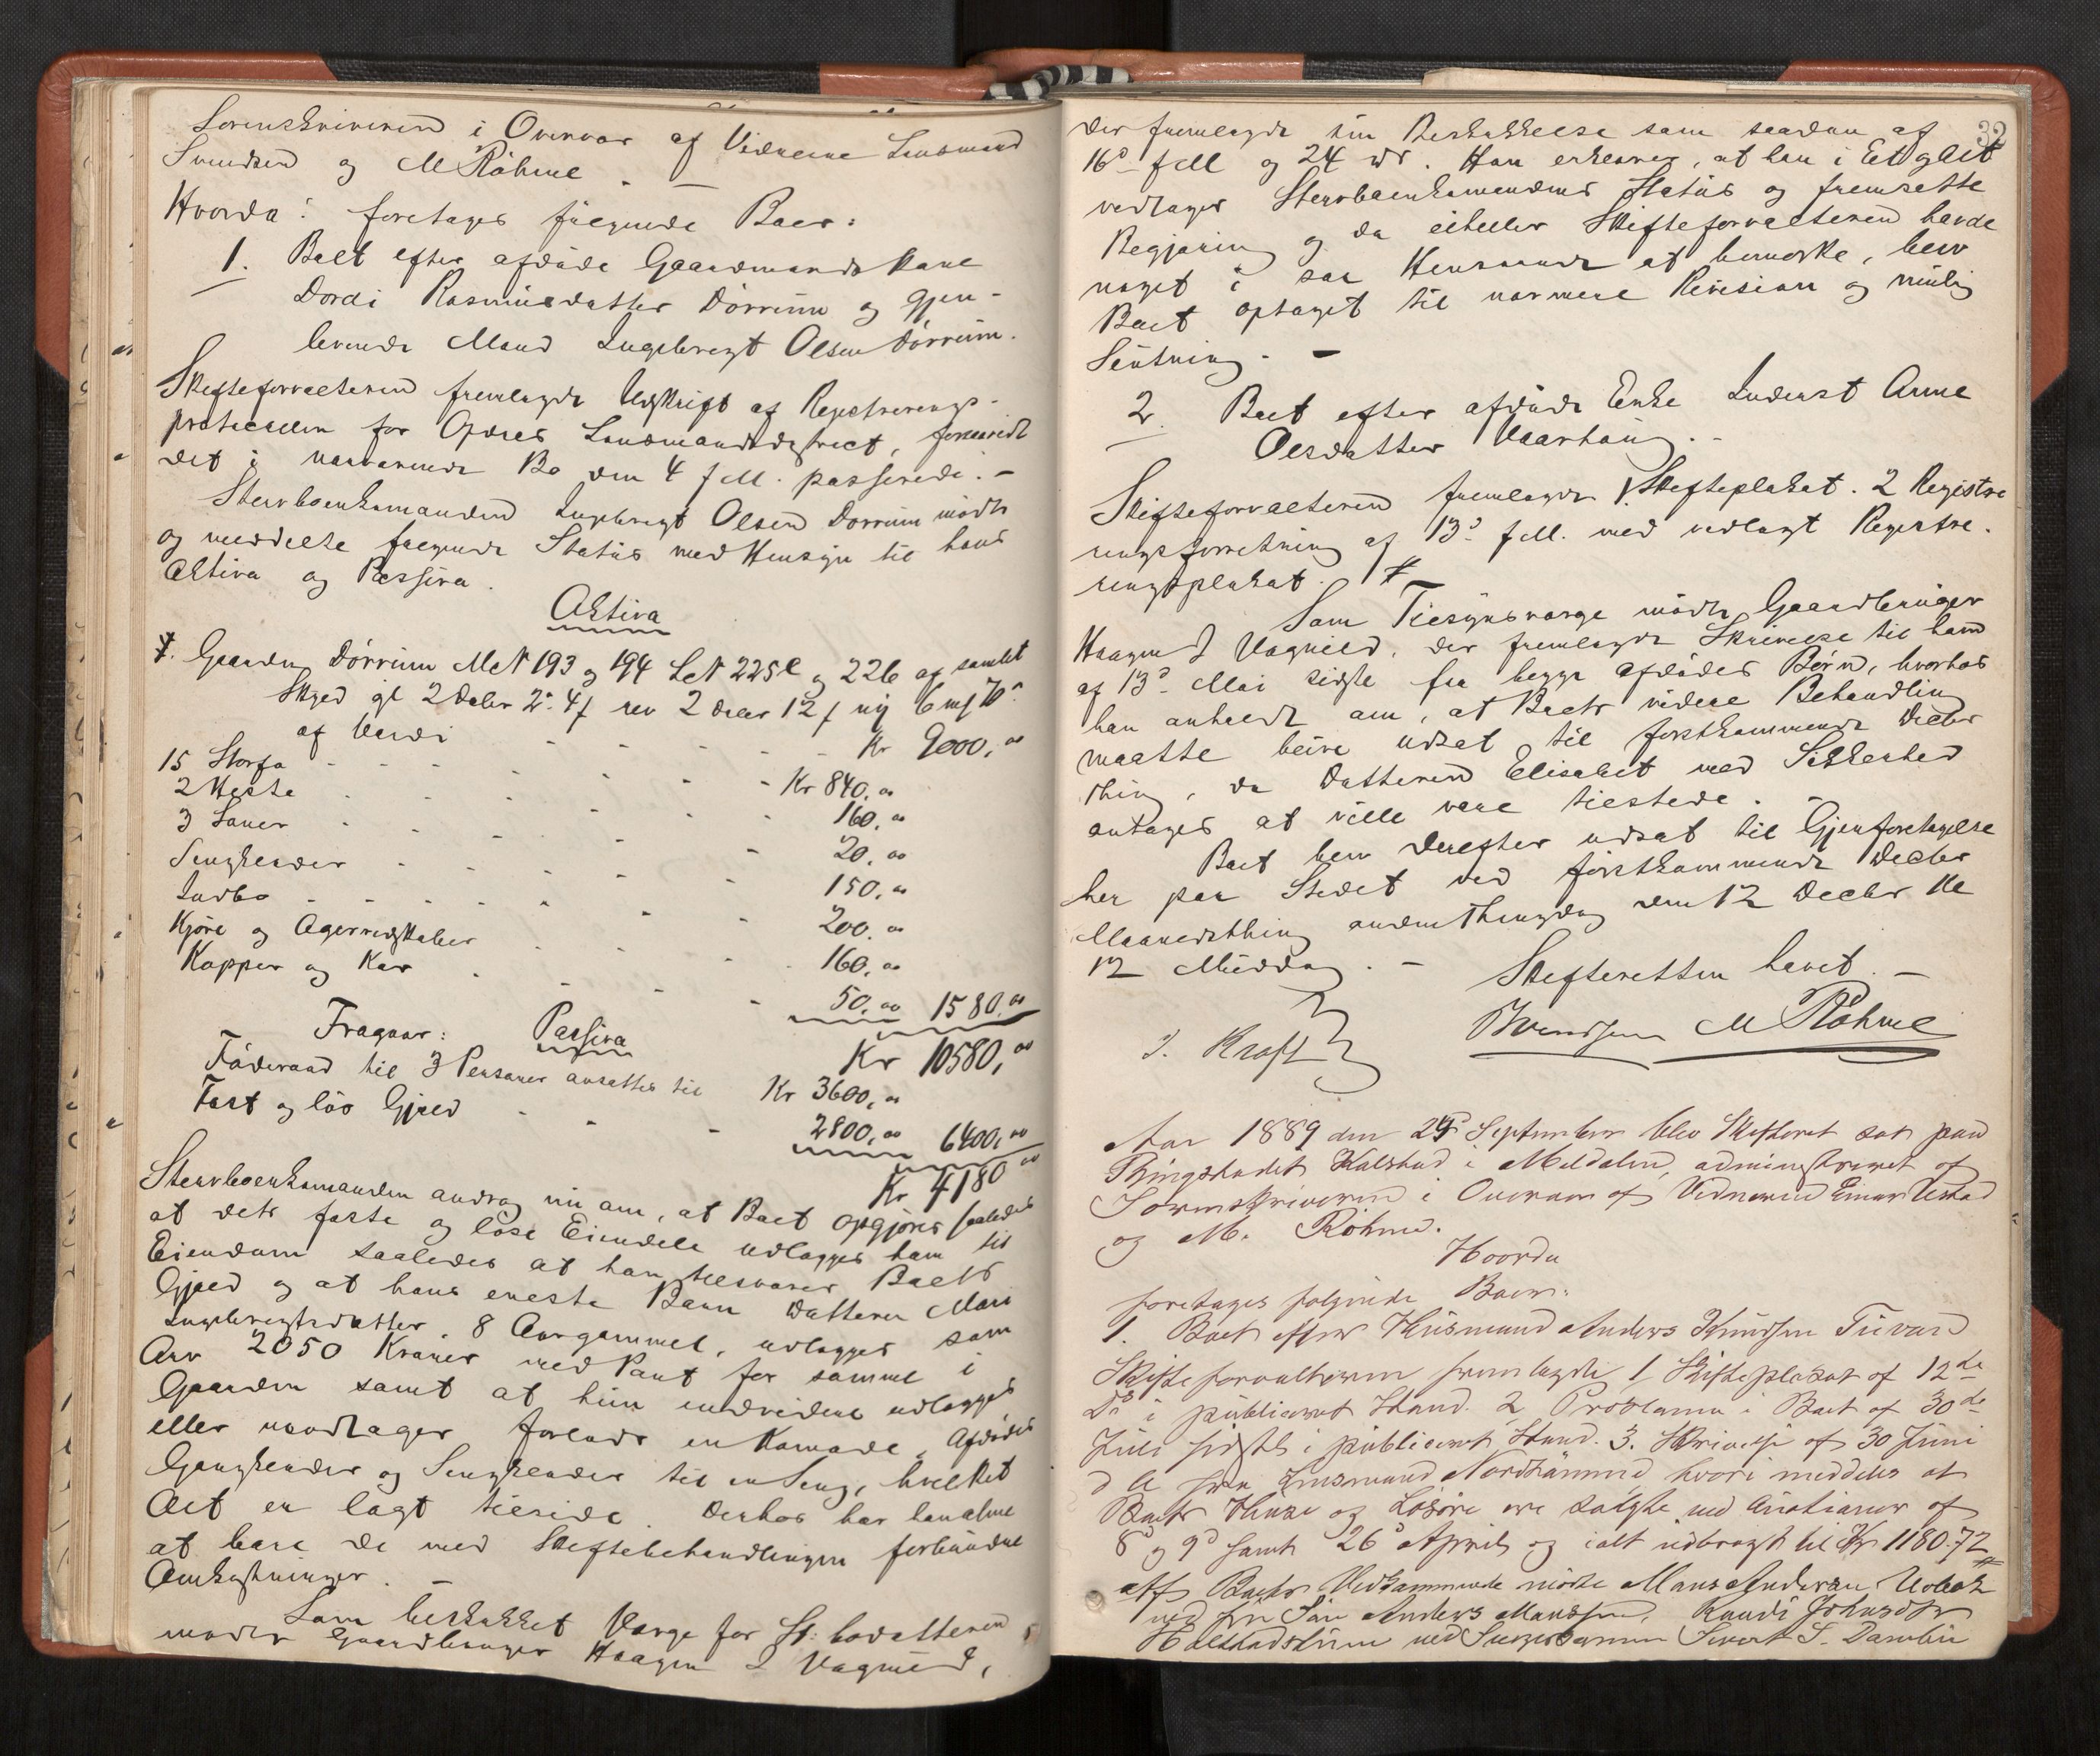 Sorenskriveren i Overvær af Vidnerne Lensmand
Svendsen og M Röhme. —
Hvorda: foretages følgende Boer:
1. Boet efter afdøde Gaardmandskone
Dordi Rasmusdatter Dørrum og gjen-
levende Mand Ingebrigt Olsen Dørrum.
Skifteforvalteren fremlagde Udskrift af Registrerings-
protocollen for Opdals Lensmandsdistrict, forsaavidt
det i nærværende Bo den 4 f M. passerede. —
Stervboenkemanden Ingebrigt Olsen Dørrum mødte
og meddelte følgende Status med Hensyn til hans
Aktiva og Passiva.
Aktiva
1. Gaarden Dørrum M N 193 og 194 L N 225 e og 226 af samlet
Skyld gl 2 Daler 2: 4 f rev 2 Daler 12 f ny 6 m 70
af Værdi - - - - Kr 9000,00
15 Storfæ - - - - Kr 840,00
2 Heste - - - - 160,00
3 Sauer - - - - 20,00
Sengklæder - - - - 150,00
Indbo - - - - 200,00
Kjøre og Agerredskaber - - - 160,00
Kopper og Kar - - - 50,00 1580,00
Kr 10580,00
Fragaar: Passiva
Föderaad til 3 Personer ansættes til Kr 3600,00
Fast og løs Gjæld - - - 2800,00 6400,00
Kr 4180,00
Stervboenkemanden androg nu om, at Boet opgjøres saaledes
at dets faste og løse Eiendele udlægges ham til
Eiendom saaledes at han tilsvarer Boets
Gjæld og at hans eneste Barn Datteren Mari
Ingebrigtsdatter, 8 Aar gammel, udlægges som
Arv 2050 Kroner med Pant for samme i
Gaarden samt at hun endvidere udlægges
eller modtager forlods en Komode, Afdødes
Gangklæder og Sengklæder til en Seng, hvilket
Alt er lagt tilside. Derhos har han alene
at bære de med Skiftebehandlingen forbundne
Omkostninger. —
Som beskikket Værge for St: bodatteren
mødte Gaardbruger Haagen I Vognild,
32
der fremlagde sin Beskikkelse som saadan af
16d f M og 24 . Han erklærer, at han i Et og Alt
vedtager Stervboenkemandens Status og fremsatte
Begjæring og da eiheller Skifteforvalteren havde
noget i saa Henseende at bemærke, blev
Boet optaget til nærmere Revision og mulig
Slutning. —
2. Boet efter afdøde Enke Inderst Anne
Olesdatter Vaarhaug. -
Skifteforvalteren fremlagde 1 Skifteplakat. 2 Registre
ringsforretning af 13d f M. med vedlagt Registre-
ringsplakat. #
Som Tilsynsværge mødte Gaardbruger
Haagen I Vognild, der fremlagde Skrivelse til ham
af 13d Mai sidste fra begge afdødes Børn, hvorhos
han anholdt om, at Boets videre Behandling
maatte blive udsat til førstkommende Decbr
thing, da Datteren Elisabet med Sikkerhed
antages at ville være tilstede. -
Boet blev derefter udsat til Gjenforetagelse
her paa Stedet ved førstkommende Decbr
Maanedsthing anden Thingdag den 12 Decbr Kl
12 Middag. — Skifteretten hævet. —
I. Kraft BSvendsen M Röhme
Aar 1889 den 24d September blev Skifteret sat paa
Thingstedet Kalstad i Meldalen, administreret af
Sorenskriveren i Overvær af Vidnerne Einar Ustad
og M. Röhme.
Hvorda
foretages følgende Boer:
1. Boet efter Husmand Anders Knudsen Tuvard
Skifteforvalteren fremlagde 1 Skifteplakat af 12te
i publiceret Stand. 2 Proclama i Boet af 30de
Juli sidstl i publiceret Stand. 3. Skrivelse af 30 Juni
d A fra Lensmand Nordhammer, hvori meddeles at
Boets Huse og Løsøre ere solgte ved Auctioner af
8d og 9d samt 26d April og ialt udbragt til Kr 1180.72 #
Af Boets Vedkommende mødte Mans Andersen Uvbak
ved sin Søn Anders Manssen, Randi Johnsdtr
Halstadstuen ved Svigersønnen Sivert S. Dambu